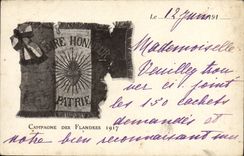 Le 12 Juin 191
GLOIRE HONNEUR
PATRIE
CAMPAGNE DES FLANDRES 1917
Mademoiselle
Veuillez trou
ver ci joint
les 150 cachets
demandés et
notre bien reconnaissant